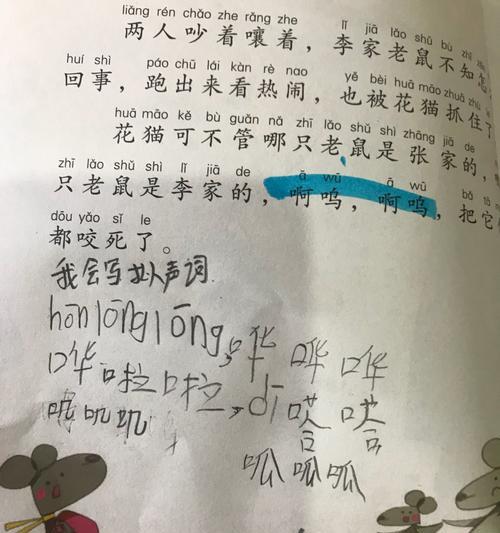 liǎng rén chǎo zhe rǎng zhe lǐ jiā lǎo shǔ bù zhī
两人吵着嚷着，李家老鼠不知怎
huí shì páo chū lái kàn rè nao yě bèi huā māo zhuā zhù
回事，跑出来看热闹，也被花猫抓住了
huā māo kě bù guǎn nǎ zhī lǎo shǔ shì zhāng jiā de
花猫可不管哪只老鼠是张家的，
zhī lǎo shǔ shì lǐ jiā de ā wū ā wū bǎ tā
只老鼠是李家的，啊呜，啊呜，把它
dōu yǎo sǐ le
都咬死了。
我会写拟人声词
hōnlōnglōng，哗哗哗
哗啦啦，dī
叽叽叽
呱呱呱